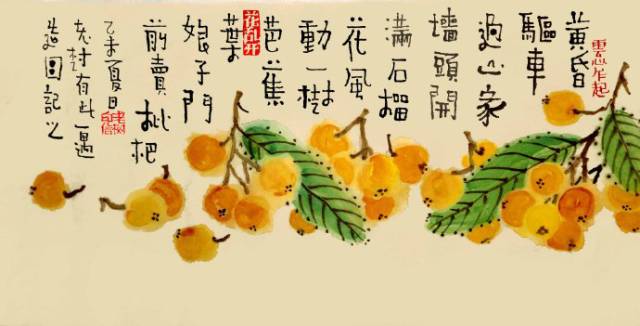 黄昏
驅車
過山家
墻頭開
滿石榴
花風
動一树
芭蕉
花乱开
葉
娘子門
前賣枇杷
乙未夏日
老村有此一遇
造圖記之